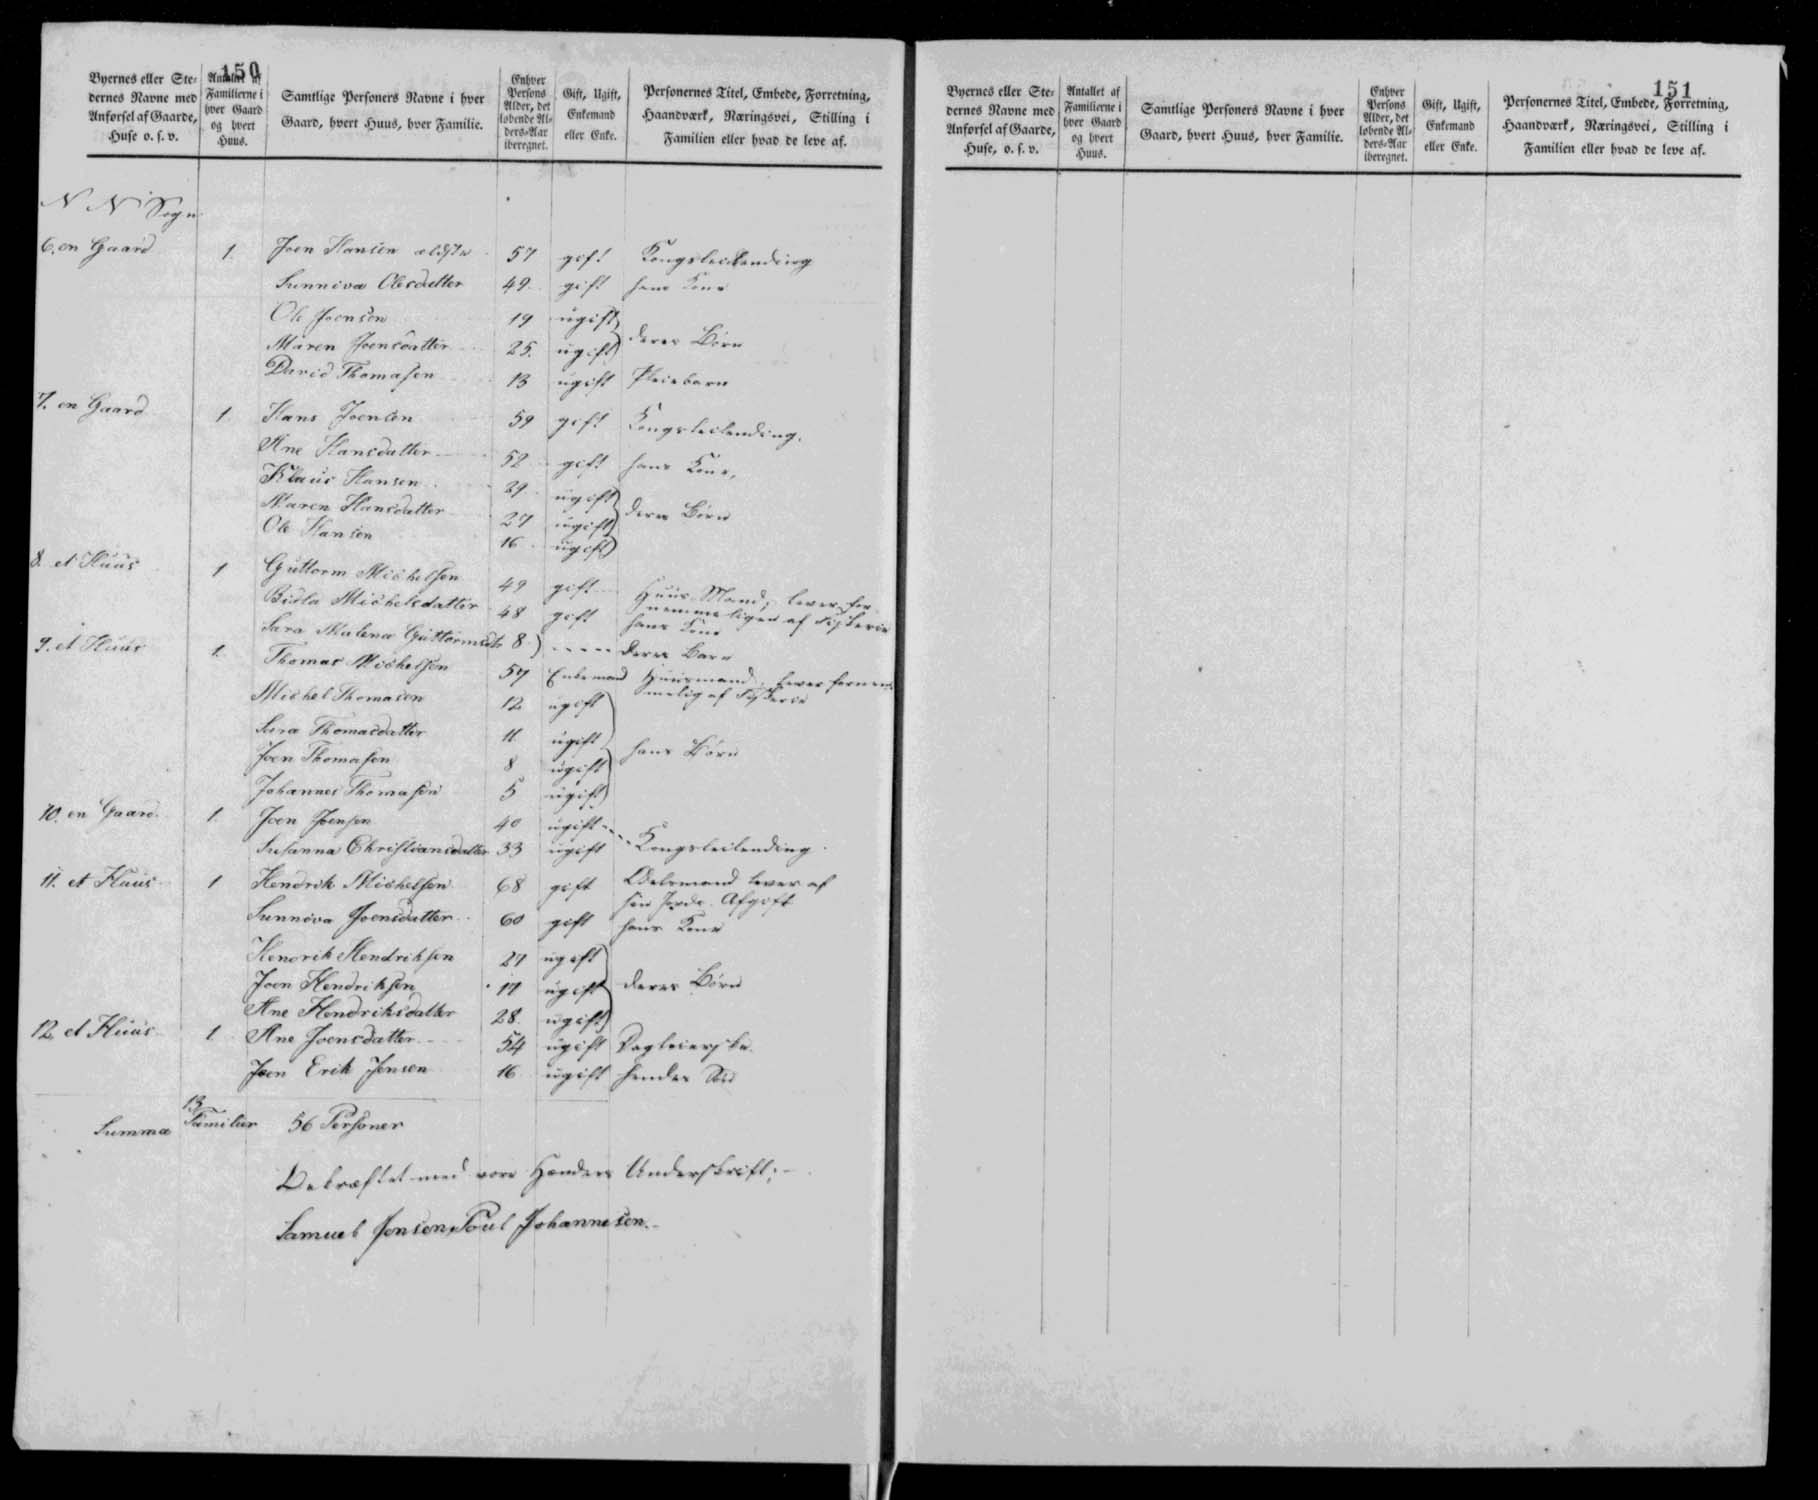 150
Byernes eller Ste-
dernes Navne med
Anførsel af Gaarde,
Huse o. s. v.
Antallet af
Familierne i
hver Gaard
og hvert
Huus.
Samtlige Personers Navne i hver
Gaard, hvert Huus, hver Familie.
Enhver
Persons
Alder, det
løbende Al-
ders-Aar
iberegnet.
Gift, Ugift,
Enkemand
eller Enke.
Personernes Titel, Embede, Forretning,
Haandværk, Næringsvei, Stilling i
Familien eller hvad de leve af.
N N Sogn
6. en Gaard 1. Joen Hansen ældste 57 gift Kongsleilending
Sunniva Olesdatter 49 gift hans Kone
Ole Joensen 19 ugift
Maren Joensdatter 25. ugift deres Børn
David Thomasen 13 ugift Pleiebarn
7. en Gaard 1. Hans Joensen 59 gift Kongsleilending.
Ane Hansdatter 52 gift hans Kone,
Klaus Hansen 29 ugift
Maren Hansdatter 27 ugift deres Børn
Ole Hansen 16 ugift
8. et Huus 1 Guttorm Michelsen 49 gift Huus Mand, lever for
nemmeligen af Fiskerie
Michelsdatter 48 gift hans Kone
Sara Malena Guttormsdtr 8 deres Barn
9. et Huus 1. Thomas Michelsen 57 Enkemand Huusmand, lever fornem
melig af Fiskerie
Michel Thomasen 12 ugift
Sara Thomasdatter 11 ugift hans Børn
Joen Thomasen 8 ugift
Johannes Thomasen 5 ugift
10. en Gaard. 1. Joen Joensen 40 ugift
Susanna Christiansdatter 33 ugift Kongsleilending.
11. et Huus 1 Hendrik Michelsen 68 gift Odelsmand lever af
sin Jords Afgift
Sunneva Joensdatter 60 gift hans Kone
Hendrik Hendriksen 27 ugift
Joen Hendriksen 17 ugift deres Børn
Ane Hendriksdatter 28. ugift
12. et Huus 1. Ane Joensdatter 54 ugift Dagleierske.
Joen Erik Jensen 16 ugift hendes Søn
Summa 13 Familier 56 Personer
Bekræftet med vore Hænders Underskrift;
Samuel Jensen, Poul Johannesen.
151
Byernes eller Ste-
dernes Navne med
Anførsel af Gaarde,
Huse, o. s. v.
Antallet af
Familierne i
hver Gaard
og hvert
Huus.
Samtlige Personers Navne i hver
Gaard, hvert Huus, hver Familie.
Enhver
Persons
Alder, det
løbende Al-
ders-Aar
iberegnet.
Gift, Ugift,
Enkemand
eller Enke.
Personernes Titel, Embede, Forretning,
Haandværk, Næringsvei, Stilling i
Familien eller hvad de leve af.